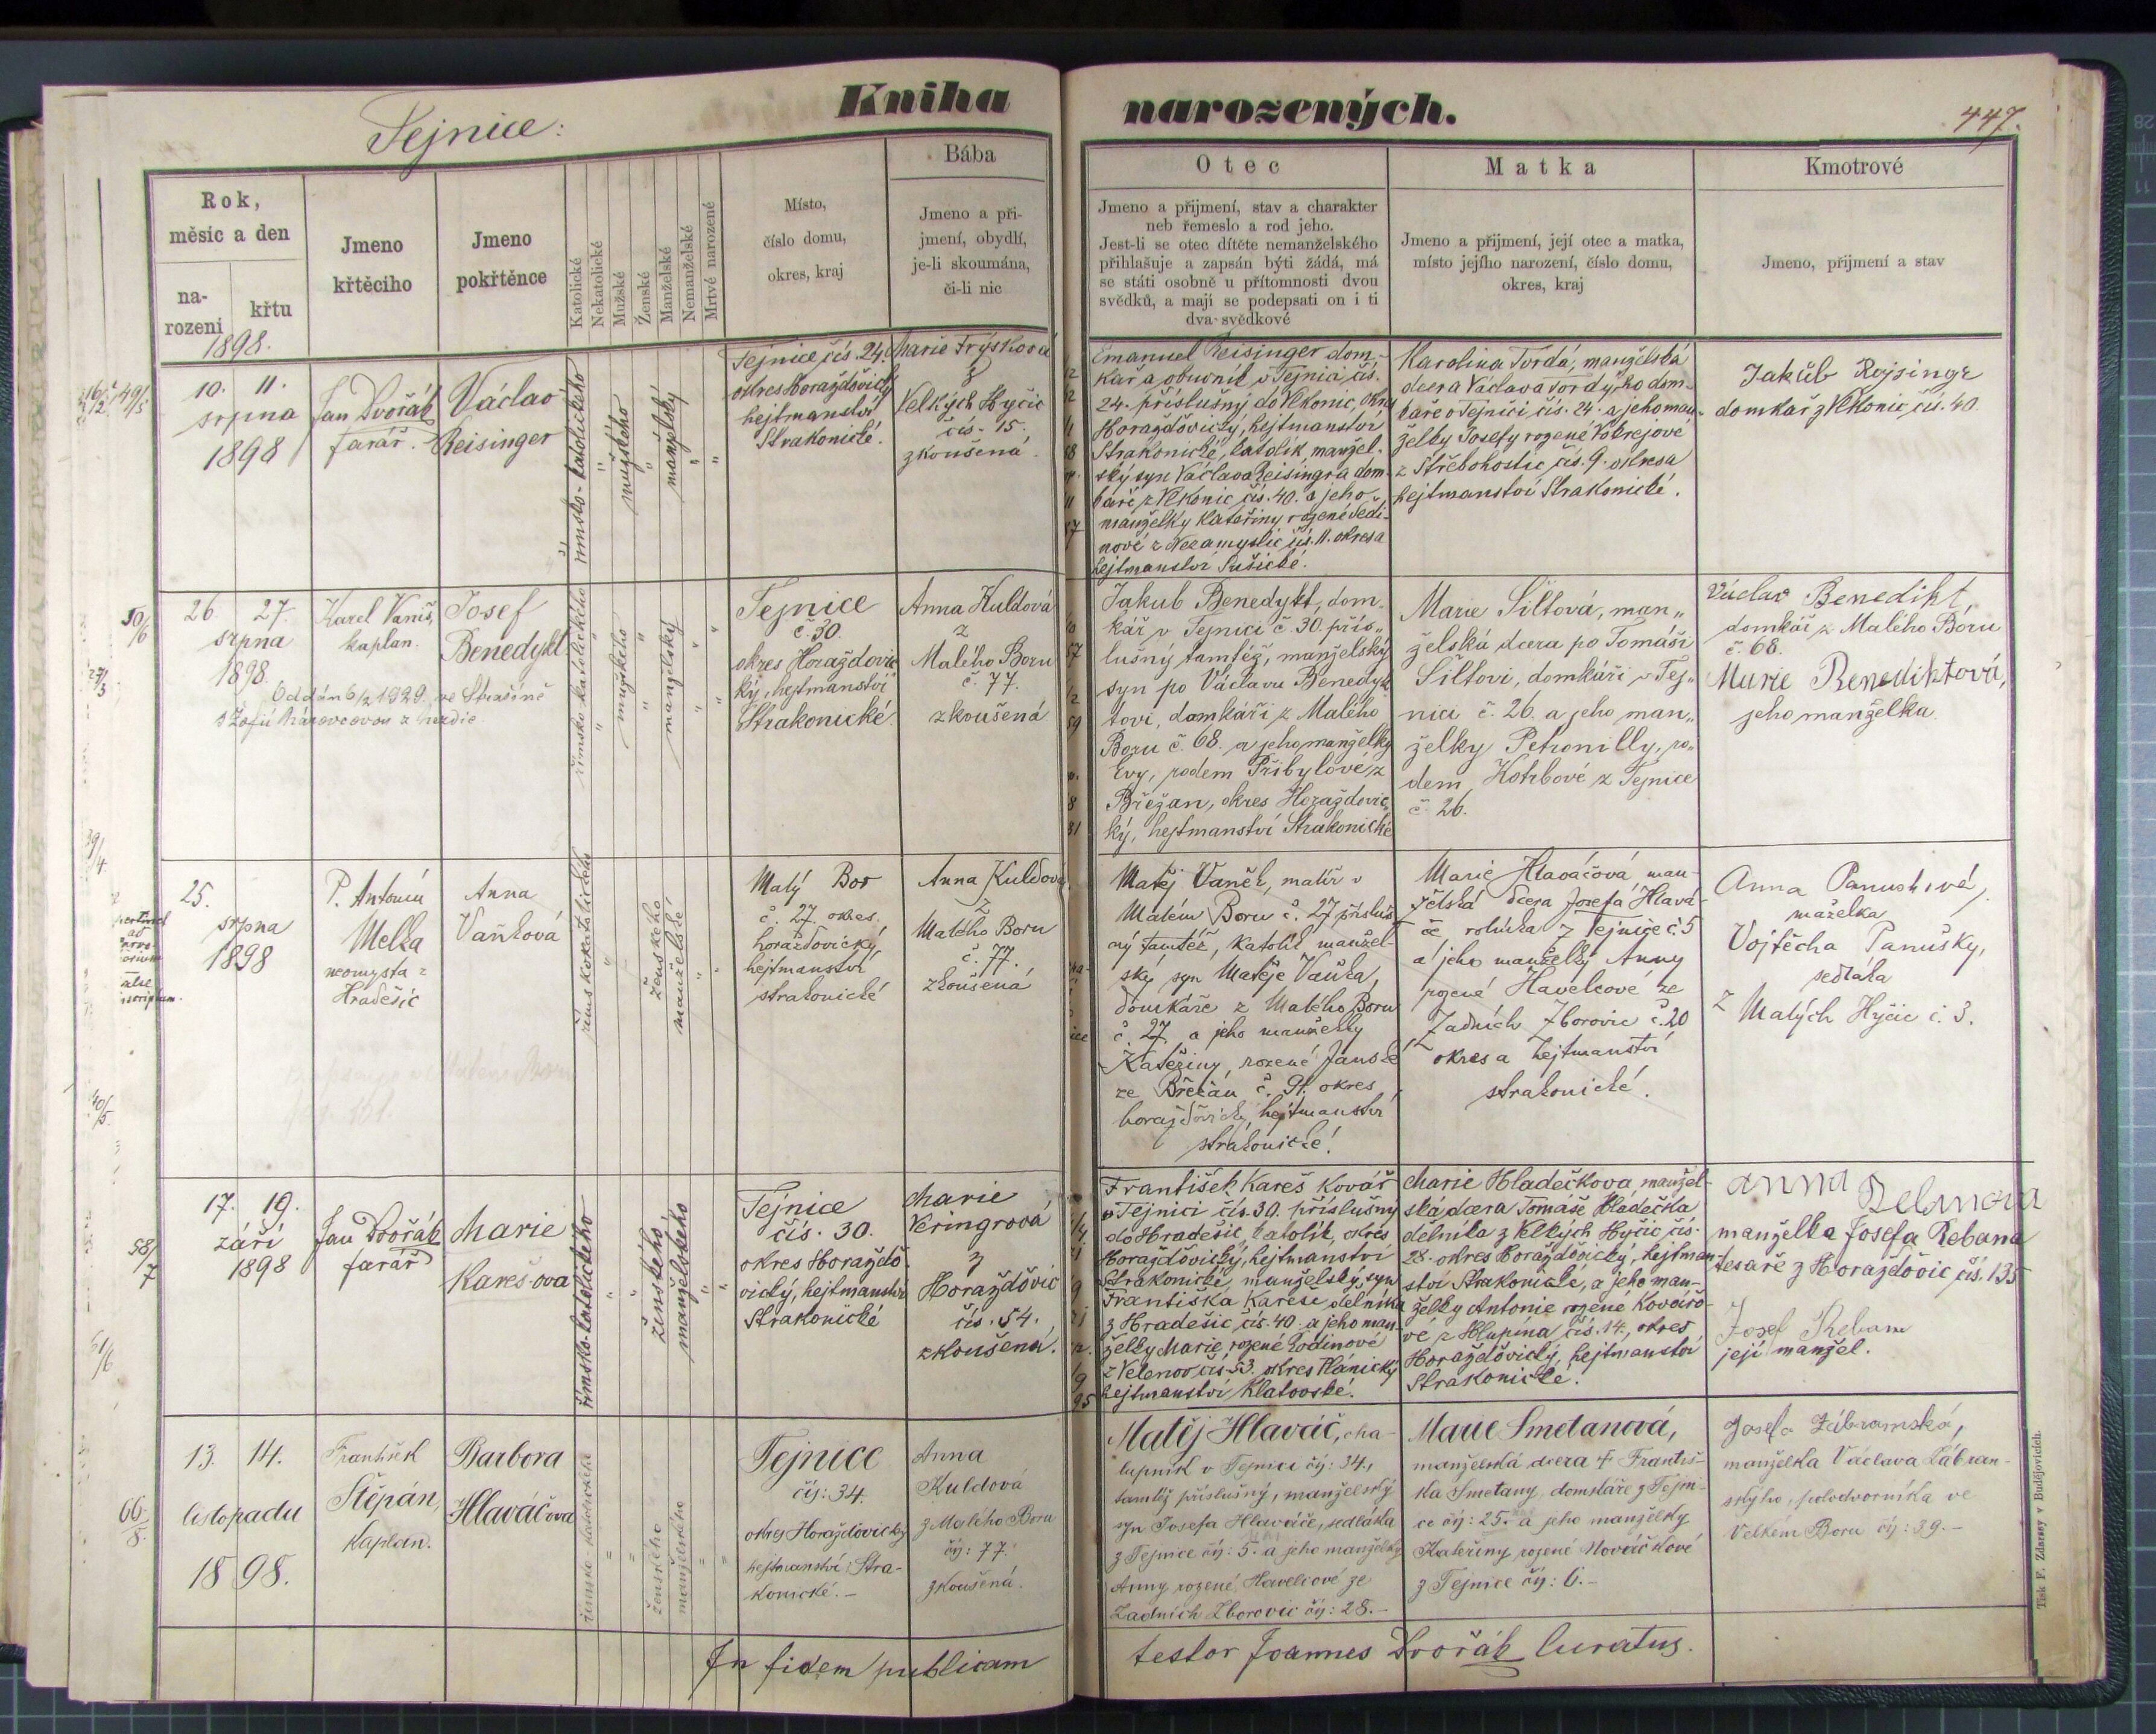 Tejnice:
Kniha narozených.
447.
Rok,
měsíc a den
na-
rozeni
křtu
1898.
Jmeno
křtěcího
Jmeno
pokřtěnce
Katolické
Nekatolické
Mužské
Ženské
Manželské
Nemanželské
Mrtvé narozené
Místo,
číslo domu,
okres, kraj
Bába
Jmeno a při-
jmení, obydlí,
je-li skoumána,
či-li nic
Otec
Jmeno a přijmení, stav a charakter
neb řemeslo a rod jeho.
Jest-li se otec dítěte nemanželského
přihlašuje a zapsán býti žádá, má
se státi osobně u přítomnosti dvou
svědků, a mají se podepsati on i ti
dva svědkové
Matka
Jmeno a přijmení, její otec a matka,
místo jejího narození, číslo domu,
okres, kraj
Kmotrové
Jmeno, přijmení a stav
10. 11.
srpna
1898
Jan Dvořák
farář.
Václav
Reisinger
římsko-katolického
mužského
manželský
Tejnice čís. 24.
okres Horažďovický
hejtmanství
Strakonické.
Marie Frýsková
z
Velkých Hyčic
čís. 15.
zkoušená.
Emanuel Reisinger dom-
kář a obuvník v Tejnici čís.
24. příslušný do Vlkonic, okres
Horažďovický, hejtmanství
Strakonické, katolík, manžel-
ský syn Václava Reisingra dom-
káře z Vlkonic čís. 40. a jeho
manželky Kateřiny rozené Jedi-
nové z Nezamyslic čís. 11. okres a
hejtmanství Sušické.
Karolina Tvrdá, manželská
dcera Václava Tvrdýho dom-
káře v Tejnici čís. 24. a jeho man-
želky Josefy rozené Vokrejové
z Střebohostic čís. 9. okres a
hejtmanství Strakonické.
Jakub Rejsingr
domkář z Vlkonic čís. 40.
50/6
26. 27.
srpna
1898.
Karel Vaniš,
kaplan.
Josef
Benedykt
Oddán 6/2 1929. ve Strašíně
s Žofií
římsko katolického
mužského
manželský
Tejnice
č. 30.
okres Horažďovic
ký, hejtmanství
Strakonické.
Anna Kuldová
z
Malého Boru
č. 77.
zkoušená
Jakub Benedykt, dom-
kář v Tejnici č. 30. přís„
lušný tamtéž, manželský
syn po Václavu Benedyk
tovi, domkáři z Malého
Boru č. 68. a jeho manželky
Evy, rodem Přibylové z
Břežan, okres Horažďovic„
ký, hejtmanství Strakonické
Marie Šiltová, man„
želská dcera po Tomáši
Šiltovi, domkáři v Tej„
nici č. 26. a jeho man„
želky Petronilly, ro„
dem Kotrbové z Tejnice
č. 26.
Václav Benedikt,
domkář z Malého Boru
č. 68.
Marie Benediktová,
jeho manželka.
25.
srpna
1898
P. Antonín
Melka
neomysta z
Hradešic
Anna
Vaňková
římskokatolického
ženského
manželské
Malý Bor
č. 27. okres.
horažďovický
hejtmanství
strakonické
Anna Kuldová
z
Malého Boru
č. 77.
zkoušená
Matěj Vaněk, malíř v
Malém Boru č. 27 přísluš
ný tamtéž, katolík manžel-
ský syn Matěje Vaňka,
domkáře z Malého Boru
č. 27 a jeho manželky
Kateřiny, rozené Janské
ze Břežan č. 91. okres
horažďovický hejtmanství
strakonické.
Marie Hlaváčová man-
želská dcera Josefa Hlavá-
če rolníka z Tejnice č. 5
a jeho manželky Anny
rozené Havelcové ze
Zadních Zborovic č. 20
okres a hejtmanství
strakonické.
Anna Panušková,
maželka
Vojtěcha Panušky,
sedláka
z Malých Hyčic č. 3.
58/7
17. 19.
září
1898
Jan Dvořák
farář
Marie
Karešova
římsko-katolického
ženského
manželského
Tejnice
čís. 30.
okres Horažďo
vický, hejtmanství
Strakonické
Marie
Veringrová
z
Horažďovic
čís. 54.
zkoušená.
František Kareš kovář
v Tejnici čís. 30. příslušný
do Hradešic, katolík, okres
Horažďovický, hejtmanství
Strakonické, manželský syn
Františka Kareše dělníka
z Hradešic čís. 40. a jeho man-
želky Marie rozené Lodinové
z Velenov čís. 53. okres Plánický
hejtmanství Klatovské.
Marie Hladečkova, manžel-
ská dcera Tomáše Hladečka
dělníka z Velkých Hyčic čís.
28. okres Horažďovický, hejtman-
ství Strakonické, a jeho man-
želky Antonie rozené Kovářo-
vé z Hlupína čís. 14., okres
Horažďovický, hejtmanství
Strakonické.
anna
manželka Josefa Rebana
tesaře z Horažďovic čís. 135
Josef Rebam
její manžel.
66/8.
13. 14.
listopadu
1898.
František
Štěpán,
kaplan.
Barbora
Hlaváčova
římsko katolického
ženského
manželského
Tejnice
čís: 34.
okres Horažďovický
hejtmanství Stra-
konické.-
Anna
Kuldová
z Malého Boru
čís: 77.
zkoušená.
Matěj Hlaváč, cha-
lupník v Tejnici čís: 34.,
tamtéž příslušný, manželský
syn Josefa Hlaváče, sedláka
z Tejnice čís: 5. a jeho manželky
Anny rozené Havelcové ze
Zadních Zborovic čís: 28.-
Marie Smetanová,
manželská dcera † Františ-
ka Smetany, domkáře z Tejni-
ce čís: 25. a jeho manželky
Kateřiny rozené Nováčkové
z Tejnice čís: 6.-
Josefa Zábranská,
manželka Václava Zábran-
skýho, polodvorníka ve
Velkém Boru čís: 39.-
In fidem publicam
testor Joannes Dvořák curatus.
Tisk F. Zdarssy v Budějovicích.